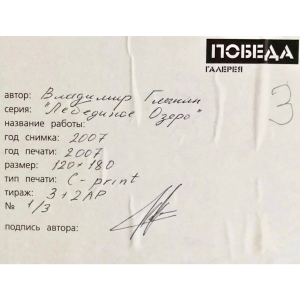 ПОБЕДА
ГАЛЕРЕЯ
3
автор: Владимир Глынин
серия: "Лебединое Озеро"
название работы:
год снимка: 2007
год печати: 2007
размер: 120×180
тип печати: C-print
тираж: 3+2AP
№ 1/3
подпись автора: